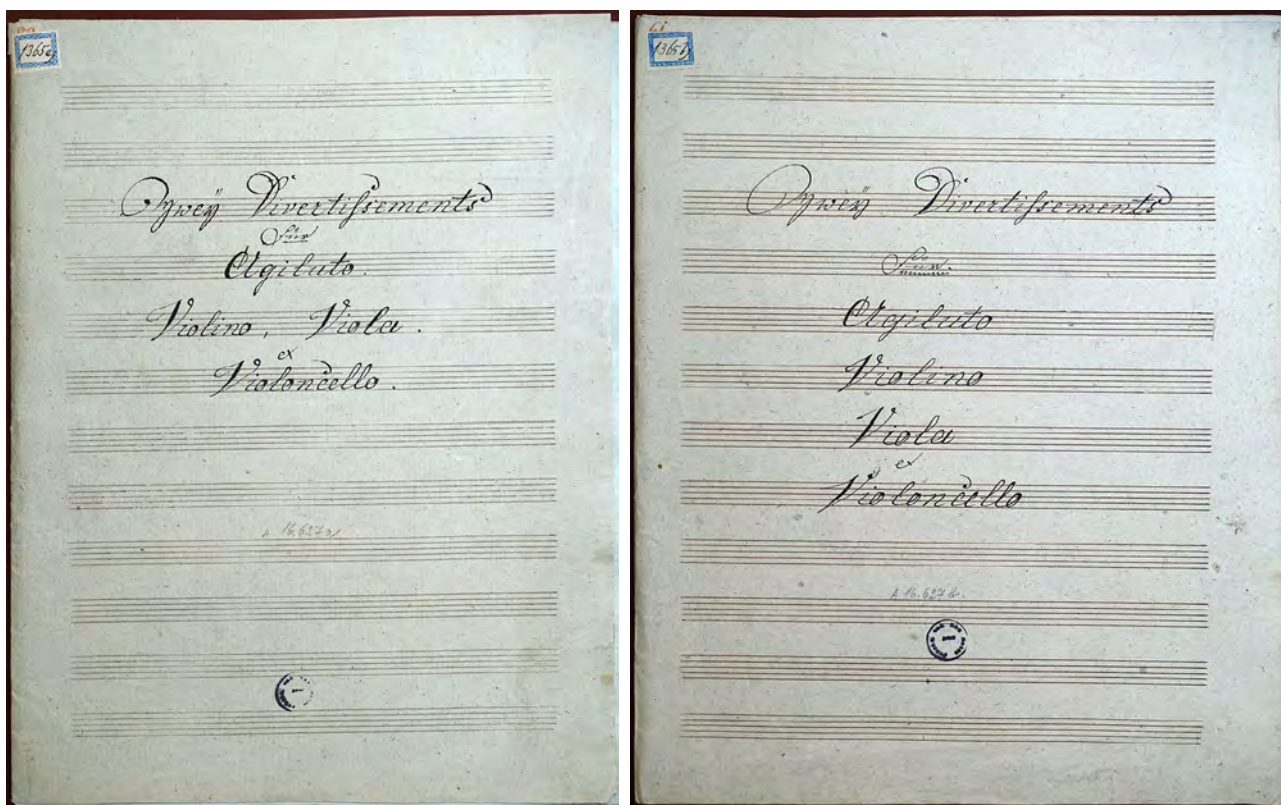 1365a
Zweÿ Divertissements
für
Agiluto.
Violino, Viola.
et
Violoncello.
A 16.627a
1365b
Zweÿ Divertissements
Für.
Agiluto
Violino
Viola
et
Violoncello
A 16.627b.